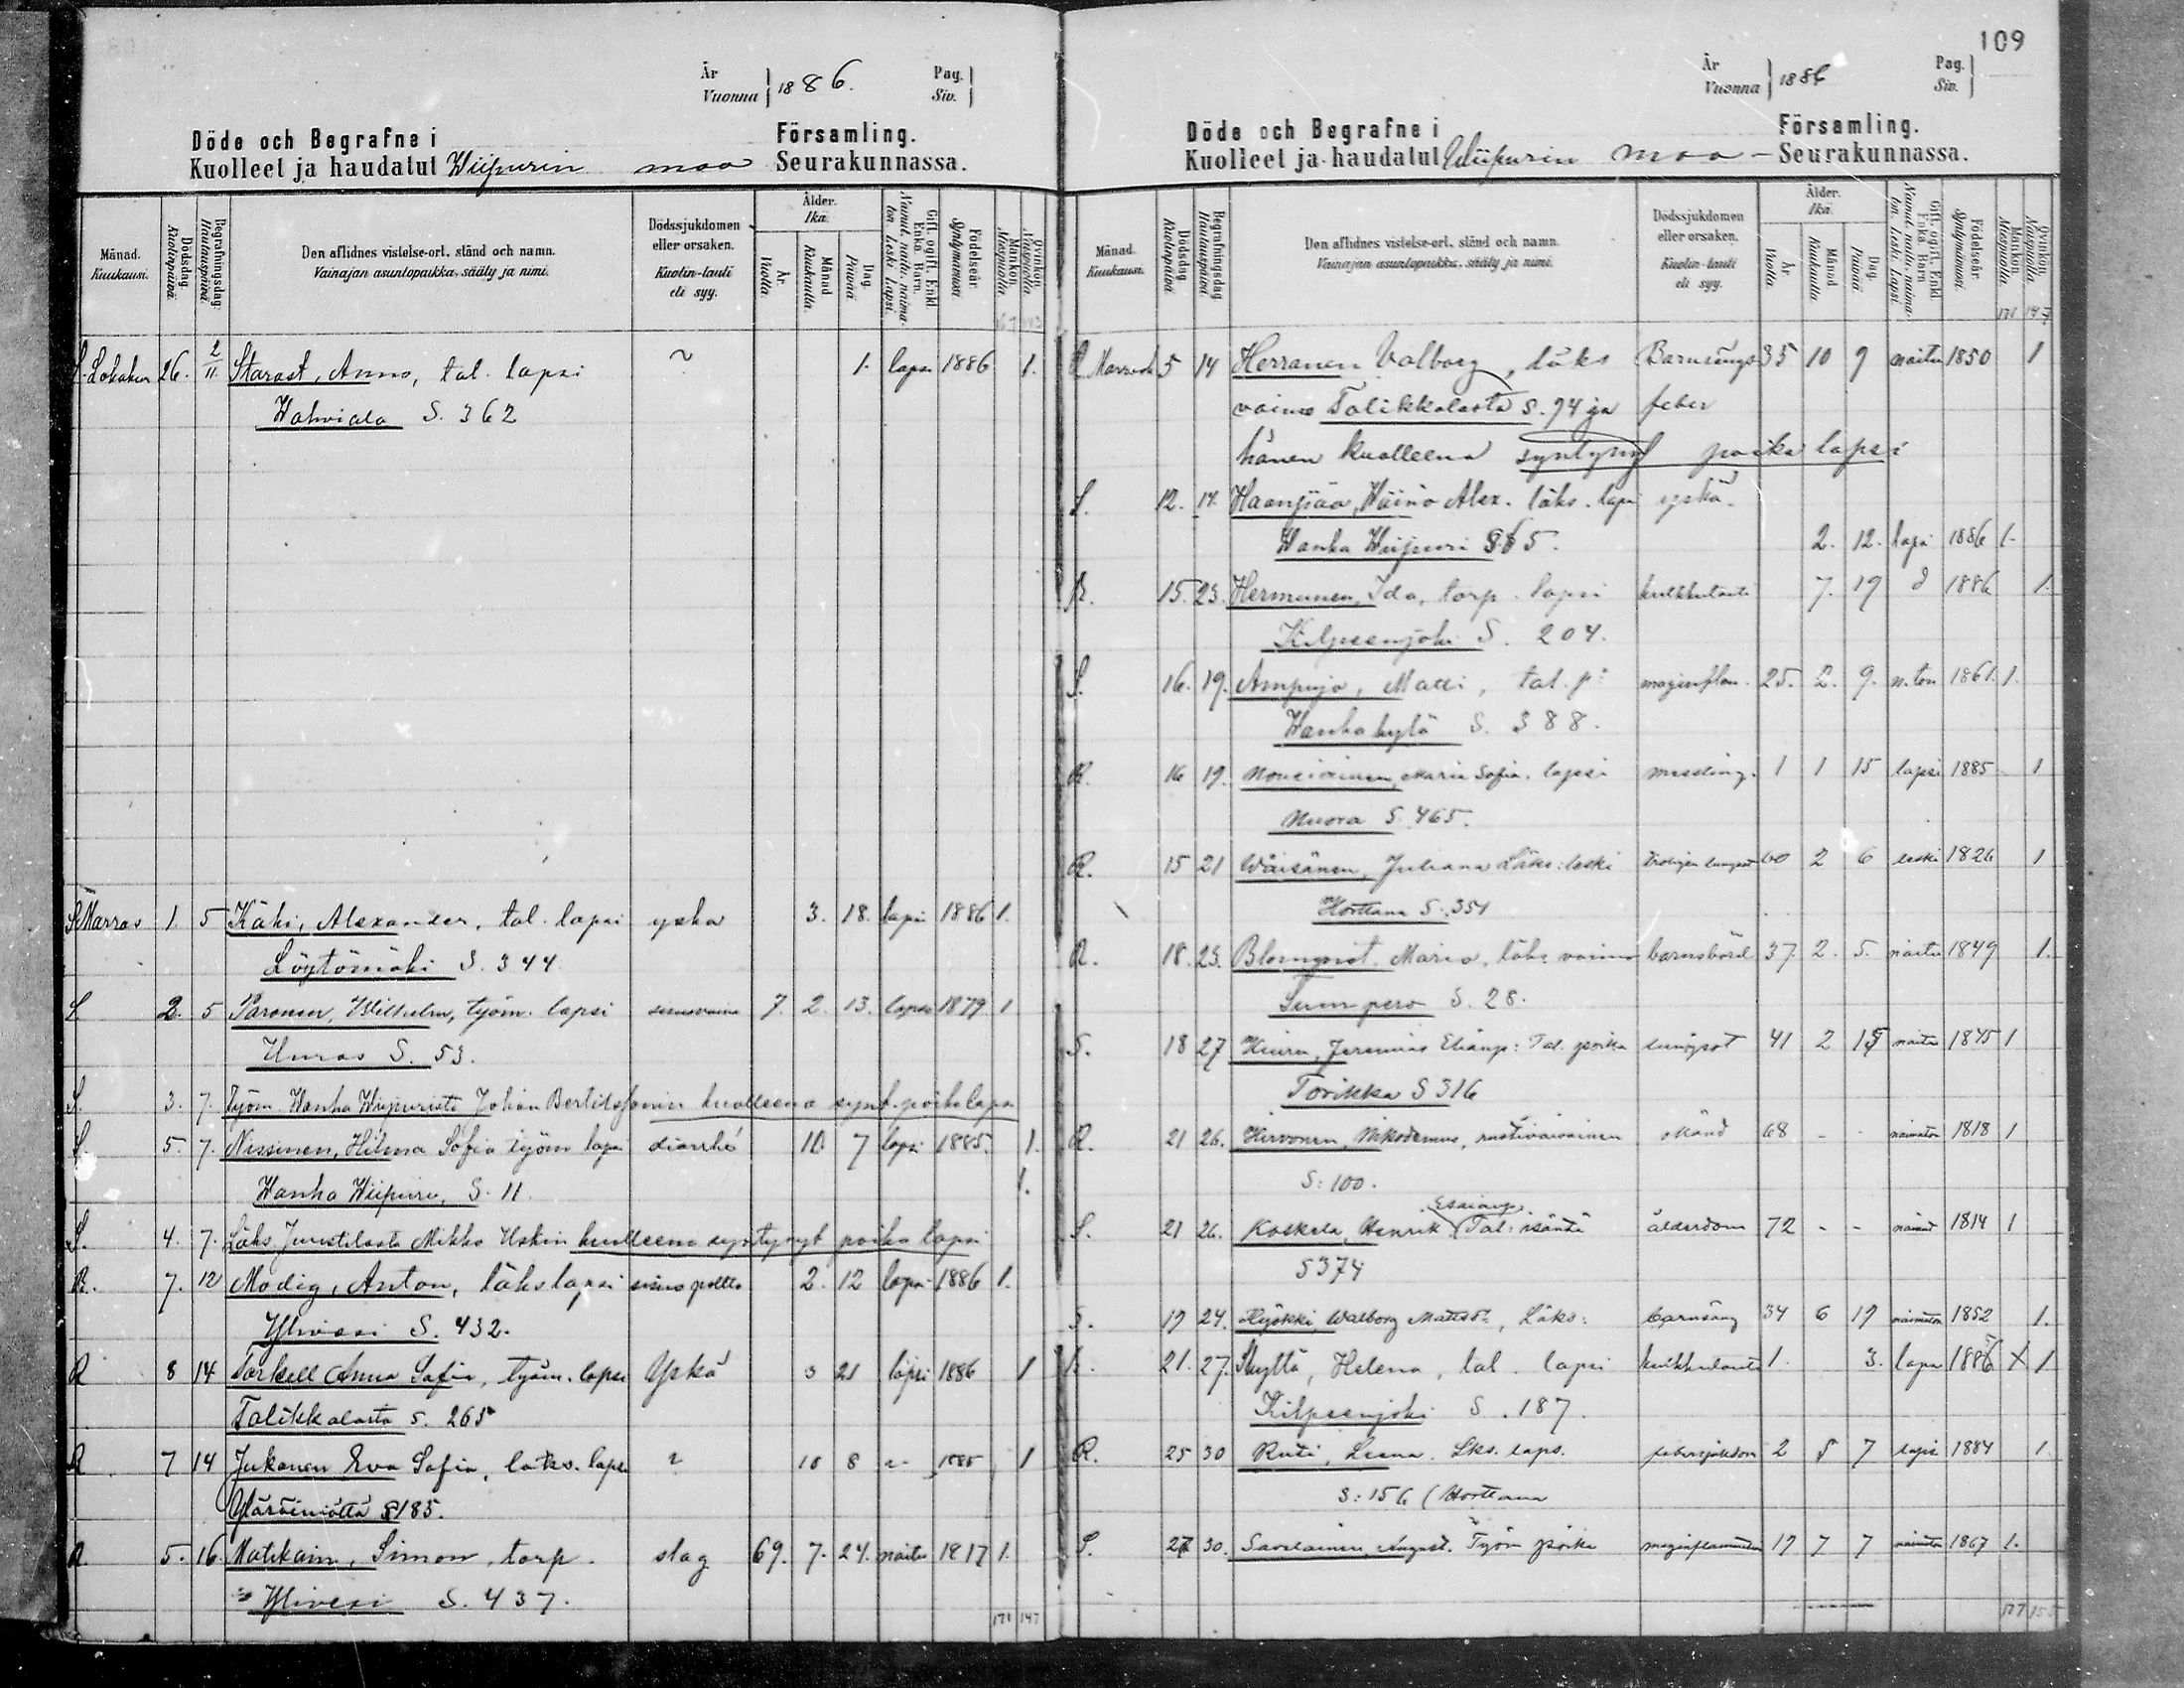 År
Vuonna } 1886.
Pag.
Siv. }
Döde och Begrafne i Församling.
Kuolleet ja haudatut Wiipurin maa Seurakunnassa.
Månad. Kuukausi.
Dödsdag. Kuolinpäivä.
Begrafningsdag. Hautauspäivä.
Den aflidnes vistelse-ort, stånd och namn.
Vainajan asuntopaikka, sääty ja nimi.
Dödssjukdomen eller orsaken.
Kuolin-tauti eli syy.
Ålder. Ikä.
År. Vuotta.
Månad. Kuukautta.
Dag. Päivää.
Gift, ogift, Enkl. Enka. Barn.
Nainut, naitu, naimaton. Leski. Lapsi.
Födelseår. Syntymävuosi.
Mankön. Miespuolia.
Qvinkön. Naispuolia.
S. Lokakuu 26. 2/11. Starast, Anna, tal. lapsi ~ 1. lapsi 1886 1.
Wahviala S. 362
S Marras 1. 5 Käki, Alexander, tal. lapsi yskä 3. 18. lapsi 1886 1.
Löytömäki S. 344
S. 2. 5 Paronen, Wilhelm, työm. lapsi 7. 2. 13. lapsi 1879 1
Uuras S. 53.
S. 3. 7. Työm Wanha Wiipurista Johan Bertilssonin kuolleena synt. poikalapsi
S. 5. 7. Nissinen, Hilma Sofia työm lapsi diarrhé 10 7 lapsi 1885. 1.
Wanha Wiipuri, S. 11. 1.
S. 4. 7. Läks Juustilasta Mikko Uskin kuolleena syntynyt poika lapsi
R. 7. 12 Modig, Anton, läks lapsi 2. 12 lapsi 1886 1.
Ylivesi S. 432.
R 8 14 Torkell Anna Sofia, työm. lapsi Yskä 3 21 lapsi 1886 1
Talikkalasta S. 265
R. 7 14 Jukanen Eva Sofia, läks. lapsi 10 8 1885 1
S 185.
R. 5. 16. Matikain, Simon, torp. slag 69. 7. 24. naitu 1817 1.
Ylivesi S. 437.
171 147
109
År
Vuonna } 1886
Pag.
Siv. }
Döde och Begrafne i Församling.
Kuolleet ja haudatut Wiipurin maa - Seurakunnassa.
Månad. Kuukausi.
Dödsdag. Kuolinpäivä.
Begrafningsdag. Hautauspäivä.
Den aflidnes vistelse-ort, stånd och namn.
Vainajan asuntopaikka, sääty ja nimi.
Dödssjukdomen eller orsaken.
Kuolin-tauti eli syy.
Ålder. Ikä.
År. Vuotta.
Månad. Kuukautta.
Dag. Päivää.
Gift, ogift, Enkl. Enka. Barn
Nainut, naitu, naimaton. Leski. Lapsi.
Födelseår. Syntymävuosi.
Mankön. Miespuolia.
Qvinkön. Naispuolia.
171 147
5 14 Herranen Valborg, läks Barnsängs 35 10 9 naitu 1850 1
vaimo Talikkalasta S. 94 ja feber
hänen kuolleena syntynyt poika lapsi
S. 12. 14. Haanpää, Wäinö Alex. läks. lapsi yskä.
Wanha Wiipuri S 65. 2. 12. lapsi 1886 1.
R. 15. 23. Hermunen, Ida, torp. lapsi kulkkutauti 7. 19 d 1886 1.
Kilpeenjoki S. 204.
S. 16. 19. Ampuja, Matti, tal. p: 25. 2. 9. n.ton 1861. 1.
Wanhakylä S. 388.
R. 16 19. Maria Sofia. lapsi messling. 1 1 15 lapsi 1885 1
Nuora S. 465.
R. 15 21 Wäisänen, Juliana Läks: leski 60 2 6 leski 1826 1
Horttana S. 351
R. 18. 23. Blomqvist. Maria. läks vaimo barnsbörd 37. 2. 5. naitu 1849 1.
S. 28.
S. 18 27 Jeremias tal. poika lungsot 41 2 15 naitu 1845 1
Torikka S 316
R. 21 26. Hirvonen, Nikodemus, ruotivaivainen okänd 68 - - naimaton 1818 1
S: 100.
Esaiasp.
S. 21 26. Koskela, Henrik Tal: isäntä ålderdom 72 - - 1814 1
S 374
S. 19 24. Walborg Mattsdr, Läks: barnsäng 34 6 19 naimaton 1852 1.
21. 27. Skyttä, Helena, tal. lapsi kulkkutauti 1. 3. lapsi 1885 1
Kilpeenjoki S. 187.
R. 25 30 Ruti, Leena. Lks. laps. 2 5 7 lapsi 1884 1.
S: 156 (Horttana
S. 27 30. Savolainen, August. Työm poika 19 7 7 naimaton 1867 1.
177 155